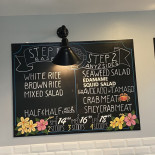 STEP 1
BASE
WHITE RICE
BROWN RICE
MIXED SALAD
HALF & HALF
STEP 2
ANY 2 SIDES
SEAWEED SALAD
EDAMAME
SQUID SALAD
AVOCADO + TAMAGO
CRAB MEAT
SPICY CRAB MEAT
14
16
18